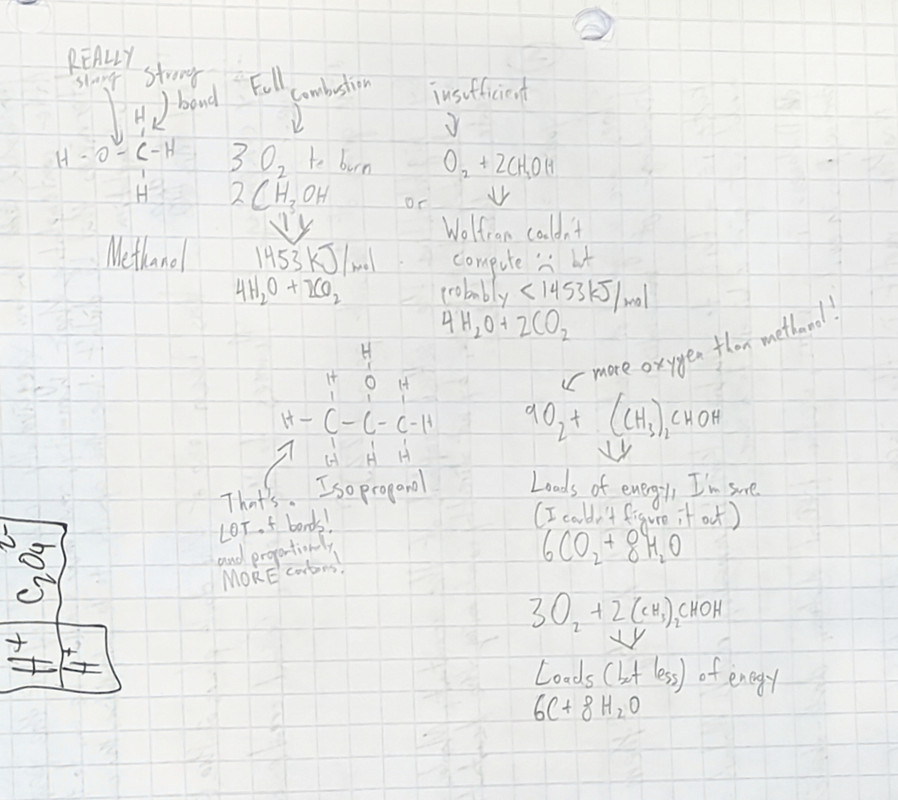 REALLY
strong
strong
bond
H
H - O - C - H
H
Methanol
Full combustion
3 O₂ to burn
2 CH₃OH
1453 kJ/mol
4H₂O + 2CO₂
or
insufficient
O₂ + 2CH₃OH
Wolfram couldn't
compute :( but
probably < 1453 kJ/mol
4H₂O + 2CO₂
H
H O H
H - C - C - C - H
H H H
Isopropanol
That's a
LOT of bonds!
and proportionly
MORE carbons!
more oxygen than methanol!
9O₂ + (CH₃)₂CHOH
Loads of energy, I'm sure
(I couldn't figure it out)
6CO₂ + 8H₂O
3O₂ + 2(CH₃)₂CHOH
Loads (but less) of energy
6C + 8H₂O
C₂O₄ 2-
H+ H+